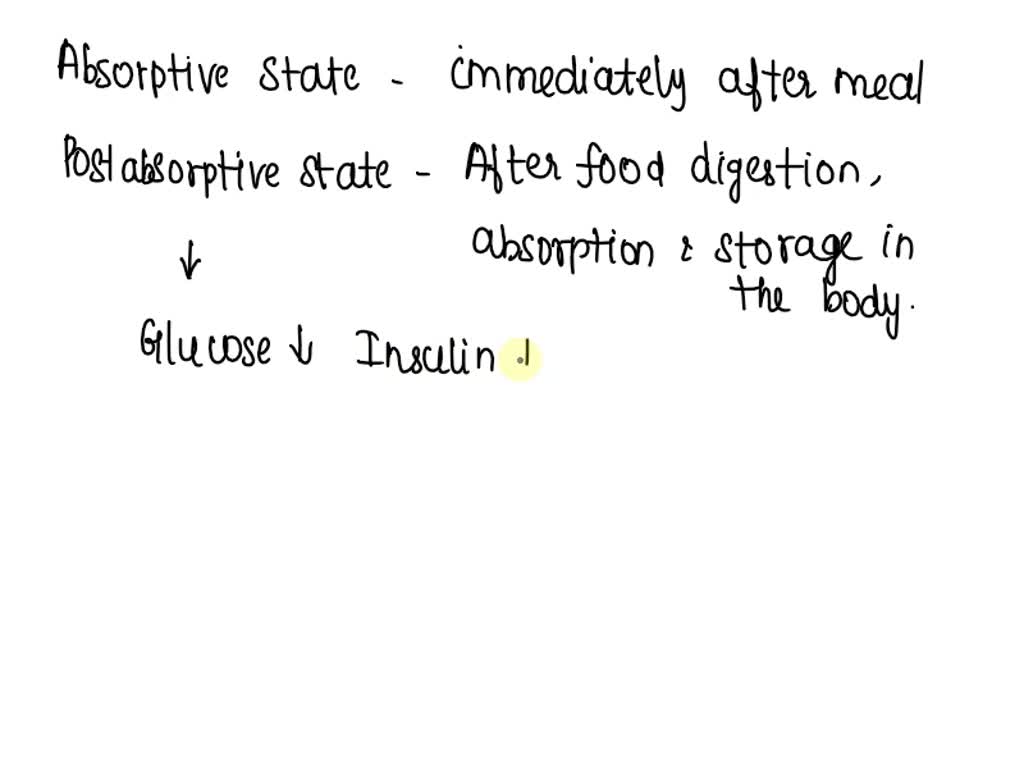 Absorptive state - immediately after meal
Postabsorptive state - After food digestion,
absorption & storage in
the body.
↓
Glucose ↓ Insulin